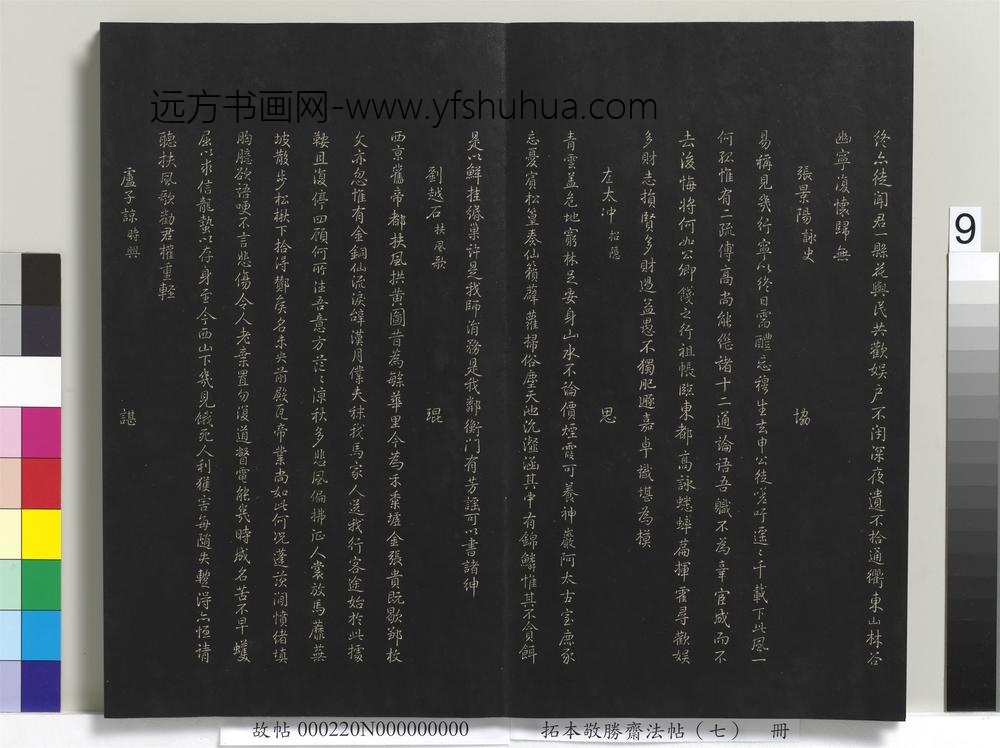 远方书画网-www.yfshuhua.com
終亦徒聞君一縣花與民共歡娱戸不閉深夜遺不拾通衢東山林谷
幽寧復懷歸無
張景陽詠史 協
易稱見幾行寧以終日需醴忘穆生去申公徒嗟吁遥々千載下此風一
何孤惟有二疏傅高尚能繼諸十二通論語吾職不為辜宦成而不
去後悔將何如公卿餞之行祖帳臨東都高詠蟋蟀篇揮霍尋歡娱
多財志損賢多財過益愚不獨肥遯嘉卓識堪為模
左太冲 招隠 思
青雲葢危地窮林足安身山水不論價煙霞可養神巖阿太古室麋豕
忘憂賓松篁奏仙籟薜蘿掃俗塵天池沉瀣涵其中有錦鱗惟其不貪餌
是以鮮挂緡巢許是我師涓務是我鄰衡門有芳謡可以書諸紳
劉越石 扶風歌 琨
西京舊帝都扶風拱黄圖昔為緐華里今為禾黍墟金張貴既歇鄒枚
文亦忽惟有金銅仙流淚辭漢月僕夫秣我馬家人送我行客途始於此據
鞍且復停四顧何所往吾意方茫々涼秋多悲風偏拂征人裳放馬蘼蕪
坡散步松栱下拾得鄼矦名未央前殿瓦帝業尚如此何况蓬茨間憤緒填
胸臆欲語哽不言悲傷令人老棄置勿復道督電能幾時成名苦不早蠖
屈以求信龍蟄以存身至今西山下幾見餓死人利獲害每隨失暫得亦恒請
聽扶風歌勸君權重輕
盧子諒 時興 諶
9
故帖 000220N000000000
拓本敬勝齋法帖（七） 冊